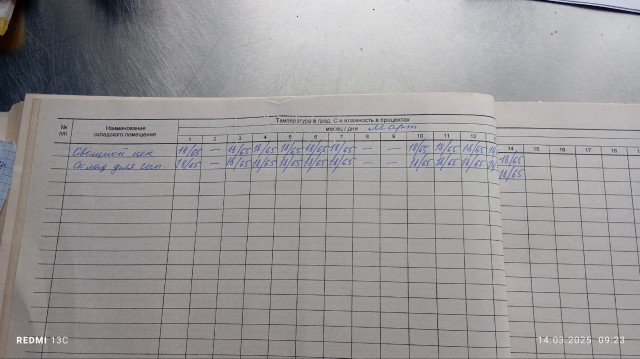 Температура в град. С и влажность в процентах
№ п/п Наименование складского помещения месяц / дни Март
1 2 3 4 5 6 7 8 9 10 11 12 14 15 16 17 18
Овощной цех 18/65 — 18/65 18/65 18/65 18/65 18/65 — — 18/65 18/65 18/65 18/65
Склад для сып. 18/65 — 18/65 18/65 18/65 18/65 18/65 — — 18/65 18/65 18/65 18/65
REDMI 13C
14.03.2025 09:23